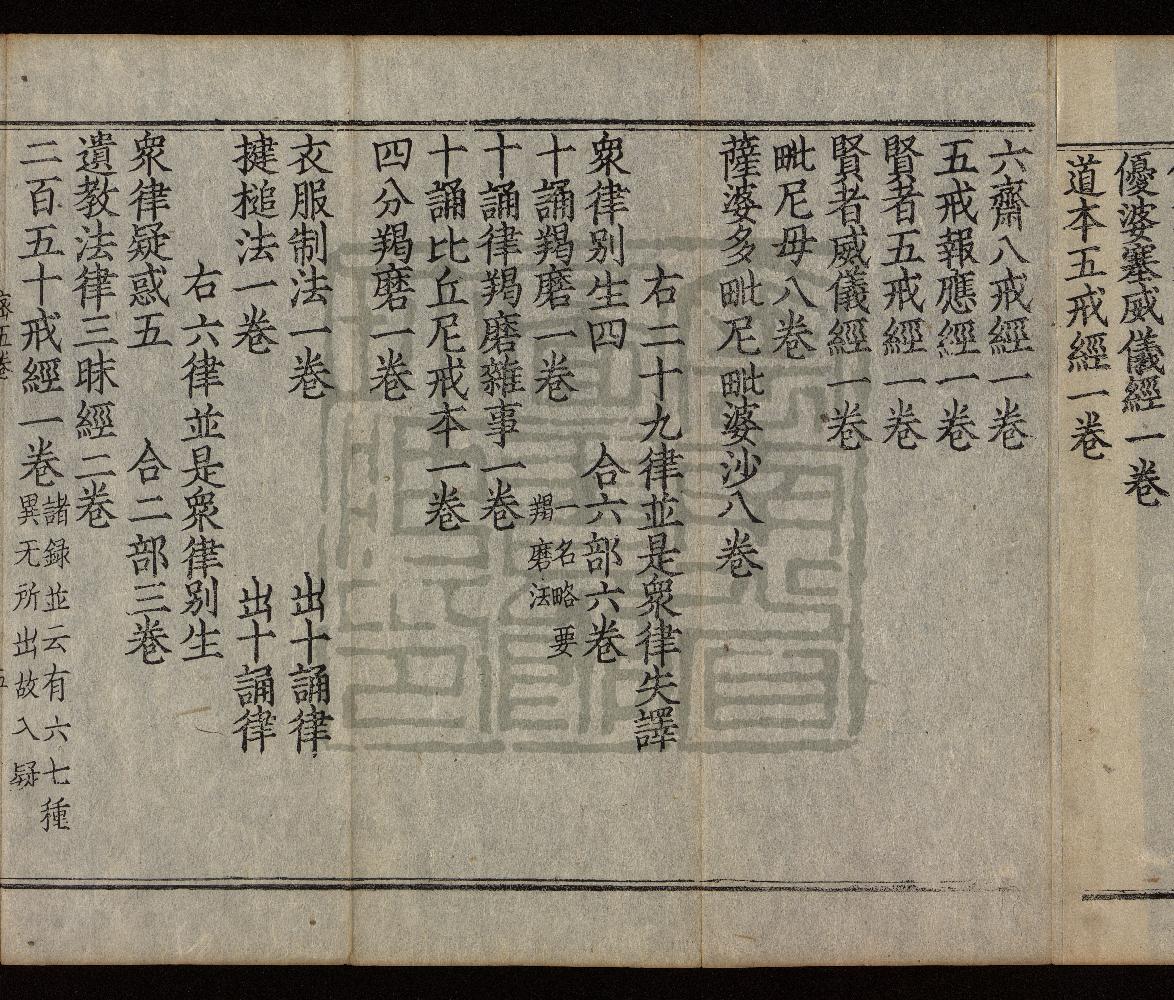 優婆塞威儀經一卷
道本五戒經一卷
六齋八戒經一卷
五戒報應經一卷
賢者五戒經一卷
賢者威儀經一卷
毗尼毋八卷
薩婆多毗尼毗婆沙八卷
右二十九律並是衆律失譯
衆律别生四　合六部六卷
十誦羯磨一卷 一名略要羯磨法
十誦律羯磨雜事一卷
十誦比丘尼戒本一卷
四分羯磨一卷
衣服制法一卷　出十誦律
揵槌法一卷　出十誦律
右六律並是衆律别生
衆律疑惑五　合二部三卷
遺教法律三昧經二卷
二百五十戒經一卷 諸録並云有六七種異无所出故入疑